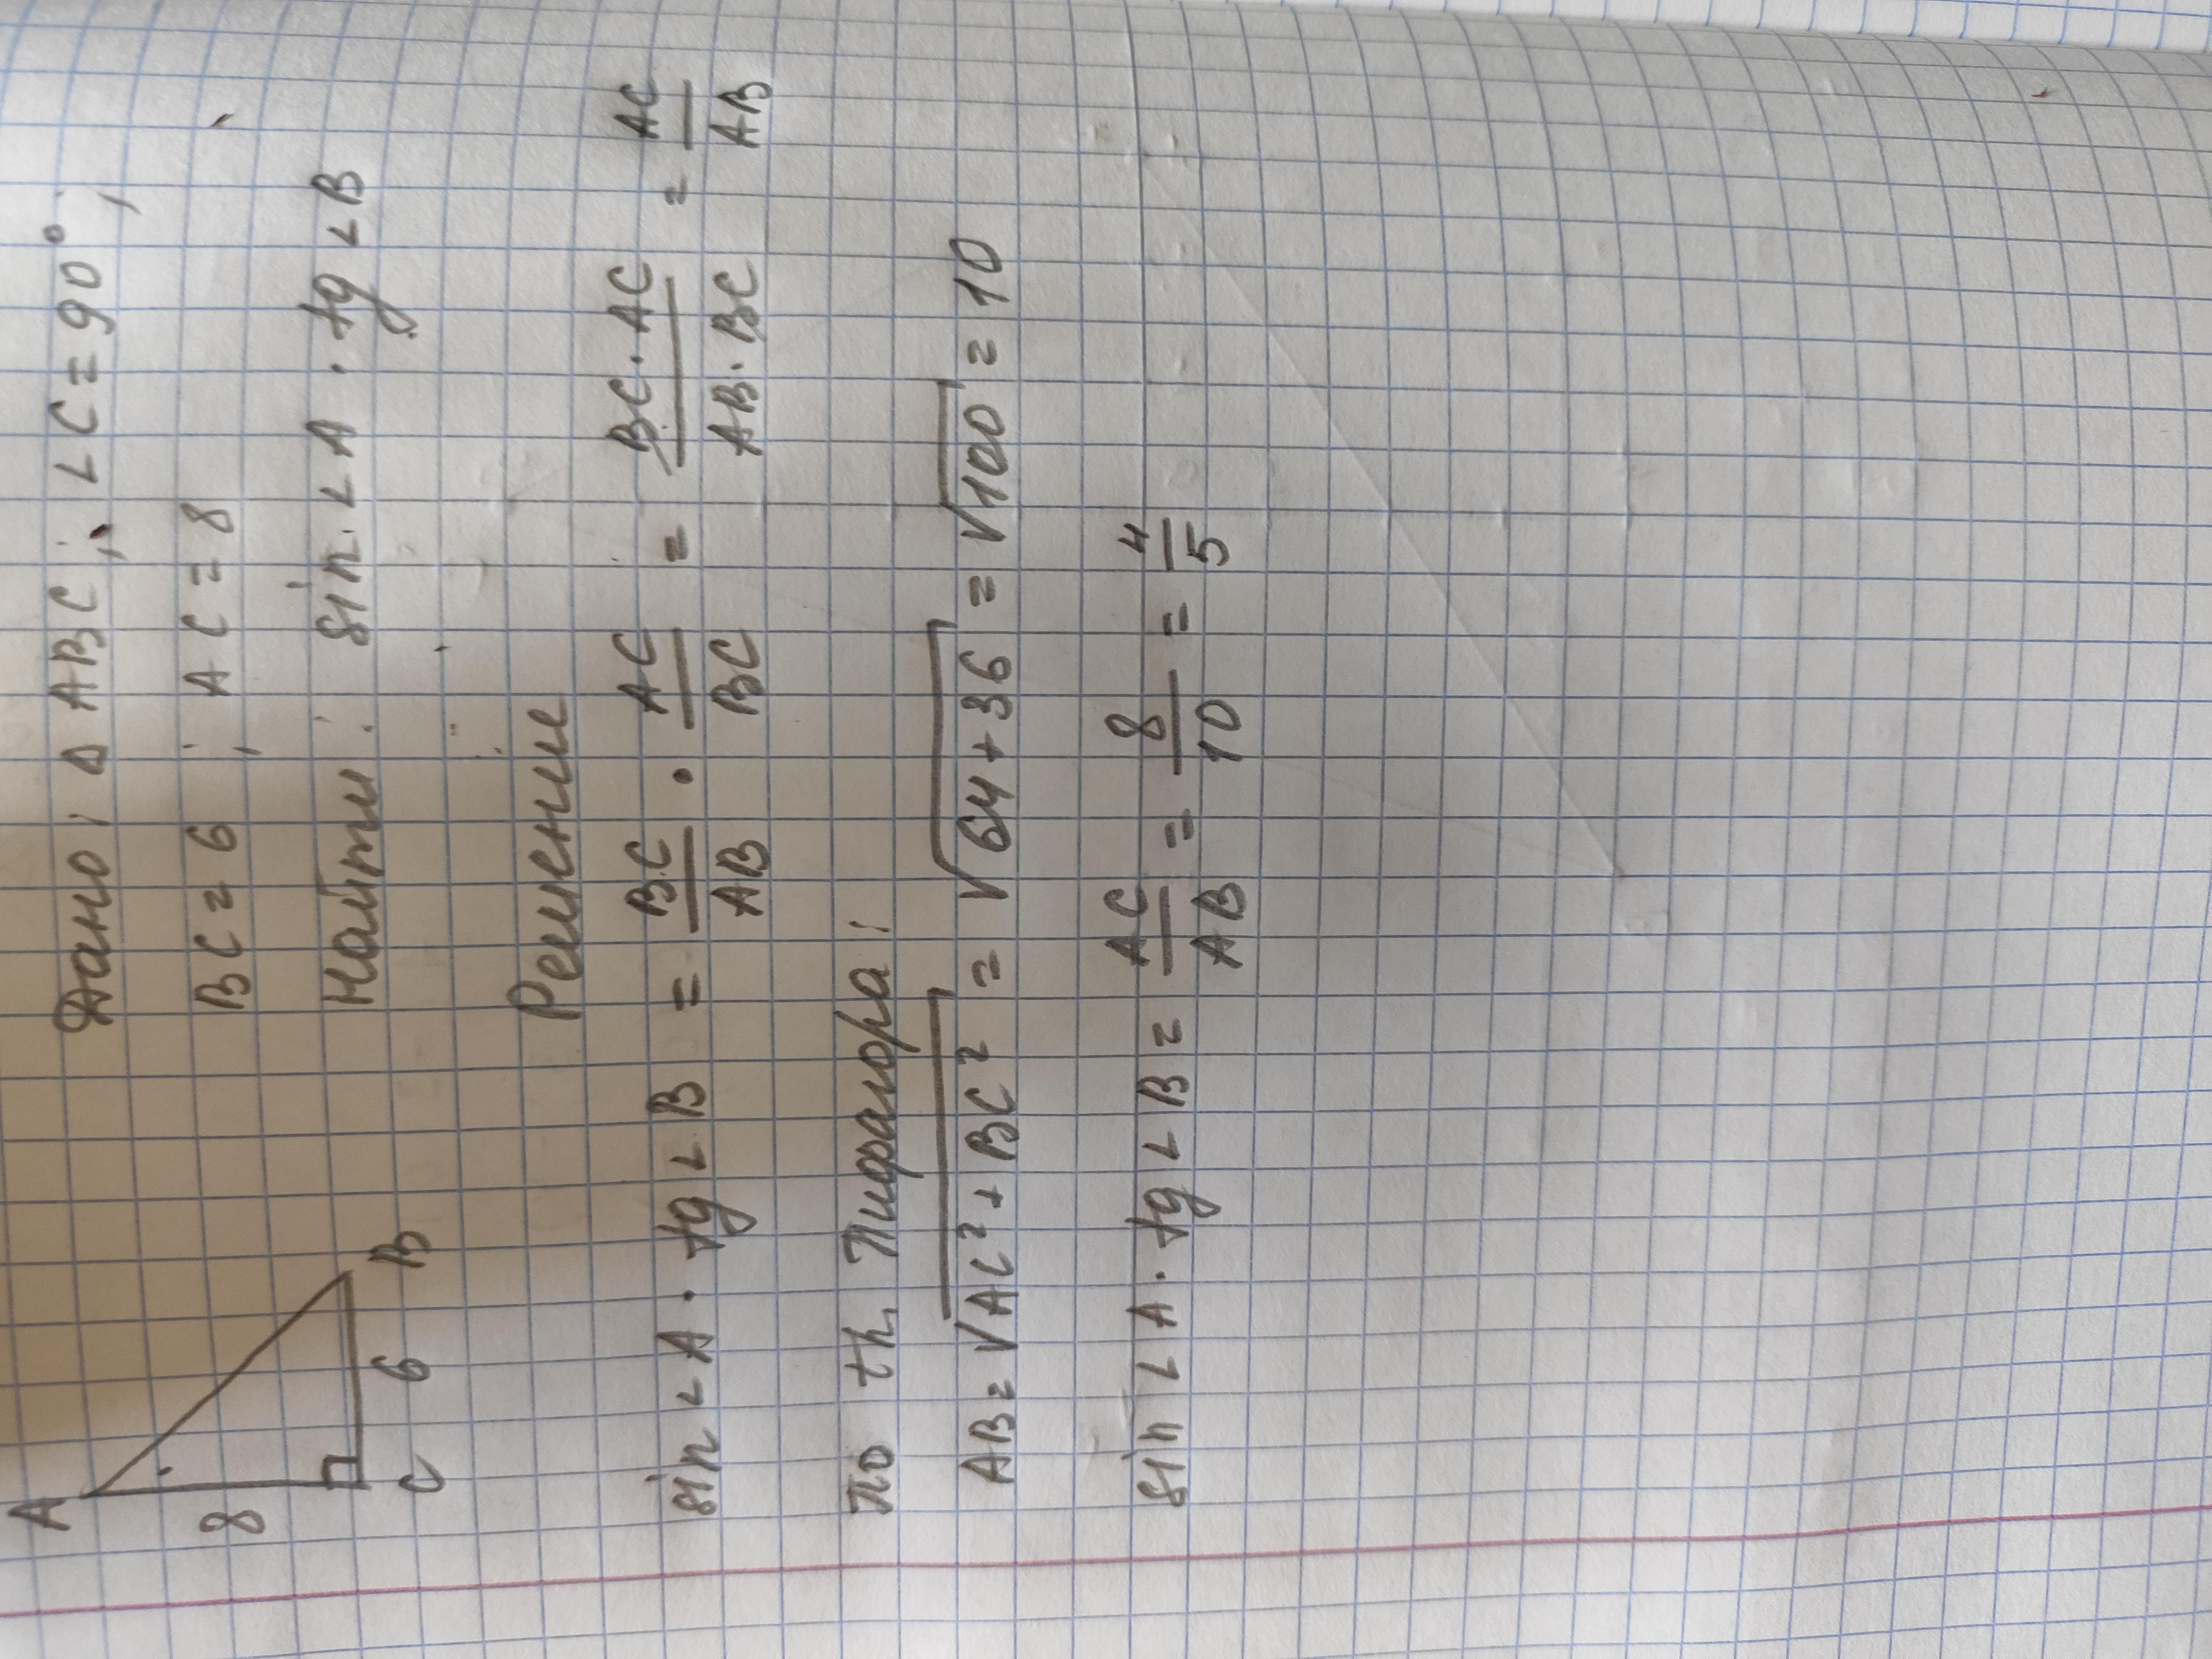 A
8
C 6 B
Дано: Δ ABC; ∠C = 90°;
BC = 6; AC = 8
Найти: sin ∠A · tg ∠B
Решение
sin ∠A · tg ∠B = BC/AB · AC/BC = BC · AC/AB · BC = AC/AB
По th. Пифагора:
AB = √AC² + BC² = √64+36 = √100 = 10
sin ∠A · tg ∠B = AC/AB = 8/10 = 4/5